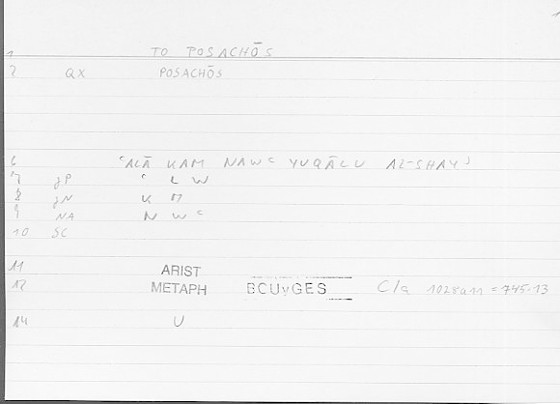 1 TO POSACHŌS
2 QX POSACHŌS
6 ʿALĀ KAM NAWʿ YUQĀLU AL-SHAYʾ
7 gP ʿ L W
8 gN K M
9 NA N W ʿ
10 SC
11 ARIST
12 METAPH BOUYGES C/a 1028a11 = 745.13
14 U